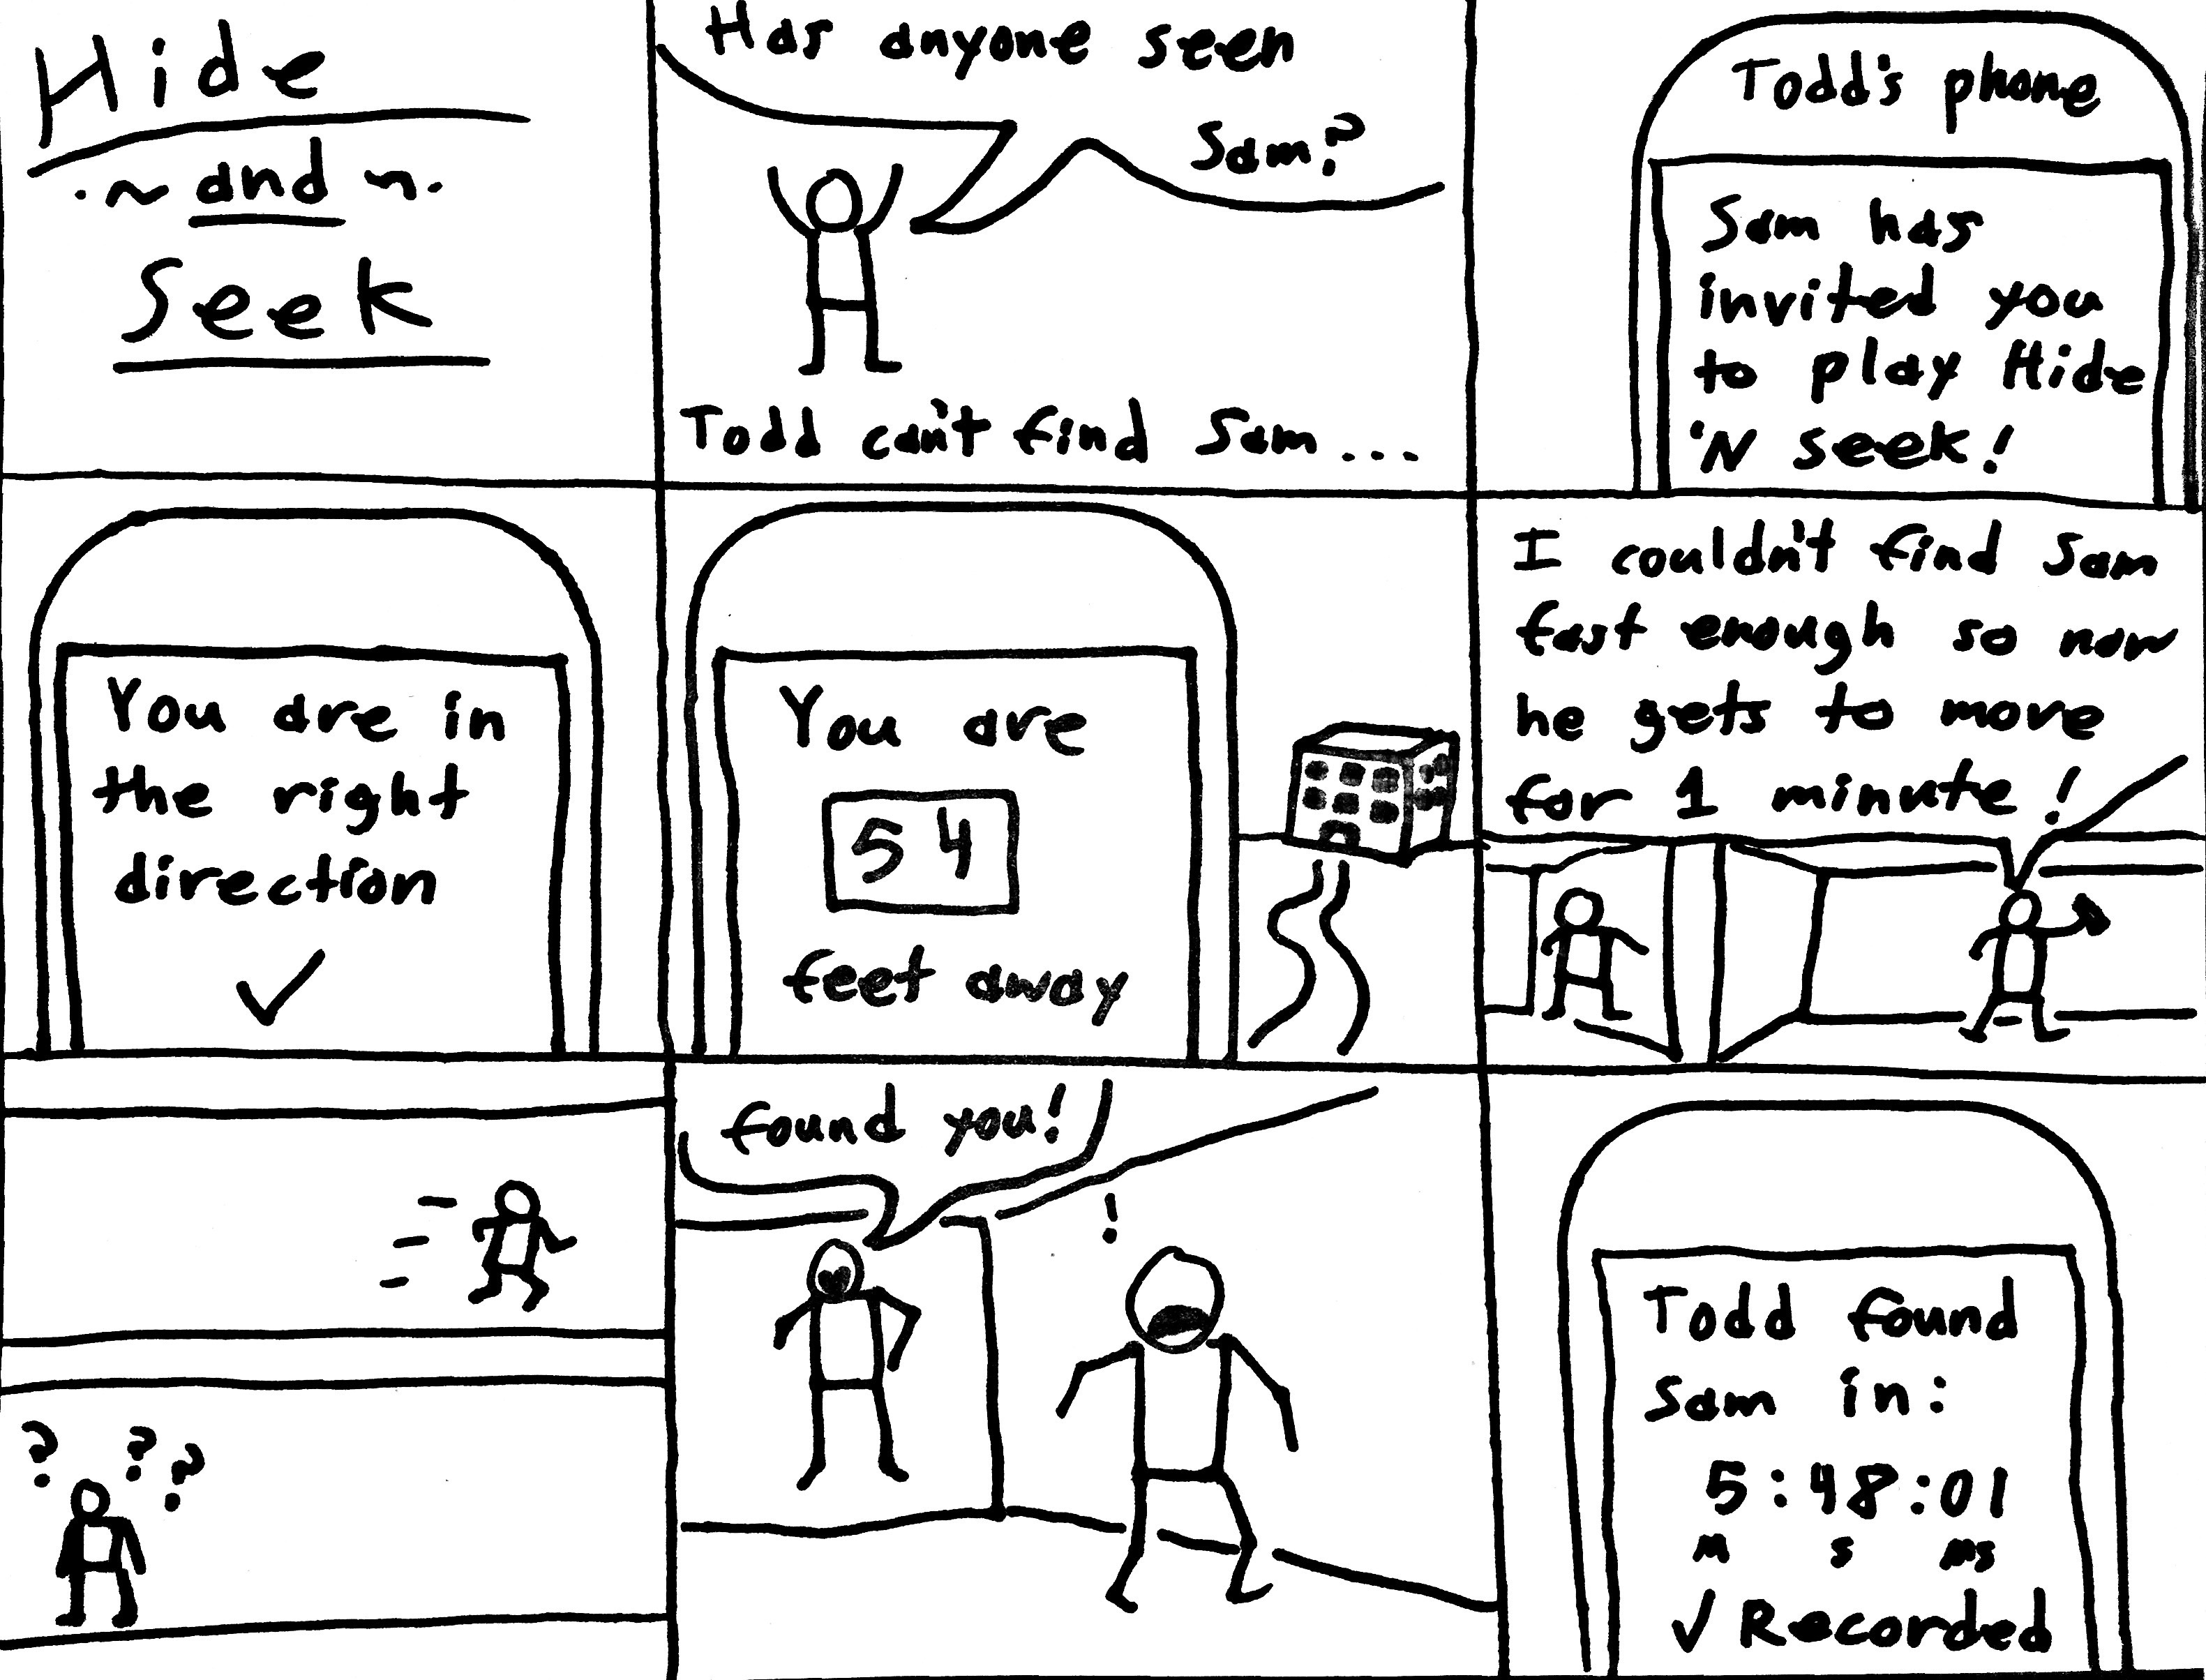 Hide
~ and ~
Seek
Has anyone seen
Sam?
Todd can't find Sam...
Todd's phone
Sam has
invited you
to play Hide
'N seek!
You are in
the right
direction
✓
You are
54
feet away
I couldn't find Sam
fast enough so now
he gets to move
for 1 minute!
? ? ?
found you!
!
Todd found
Sam in:
5:48:01
m s ms
✓ Recorded